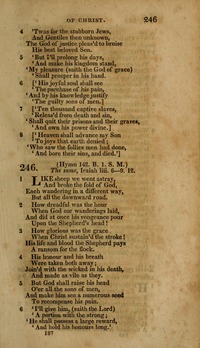 OF CHRIST. 246
4 'Twas for the stubborn Jews,
And Gentiles then unknown,
The God of justice pleas'd to bruise
His best beloved Son.
5 'But I'll prolong his days,
'And make his kingdom stand,
'My pleasure (saith the God of grace)
'Shall prosper in his hand.
6 ['His joyful soul shall see
'The purchase of his pain,
'And by his knowledge justify
'The guilty sons of men.]
7 ['Ten thousand captive slaves,
'Releas'd from death and sin,
'Shall quit their prisons and their graves,
'And own his power divine.]
8 ['Heaven shall advance my Son
'To joys that earth denied;
'Who saw the follies men had done,
'And bore their sins, and died.']
246. (Hymn 142. B. 1. S. M.)
The same, Isaiah liii. 6—9. 12.
1 LIKE sheep we went astray,
And broke the fold of God,
Each wandering in a different way,
But all the downward road.
2 How dreadful was the hour
When God our wanderings laid,
And did at once his vengeance pour
Upon the Shepherd's head!
3 How glorious was the grace
When Christ sustain'd the stroke!
His life and blood the Shepherd pays
A ransom for the flock.
4 His honour and his breath
Were taken both away;
Join'd with the wicked in his death,
And made as vile as they.
5 But God shall raise his head
O'er all the sons of men,
And make him see a numerous seed
To recompense his pain.
6 'I'll give him, (saith the Lord)
'A portion with the strong;
'He shall possess a large reward,
'And hold his honours long.'
187